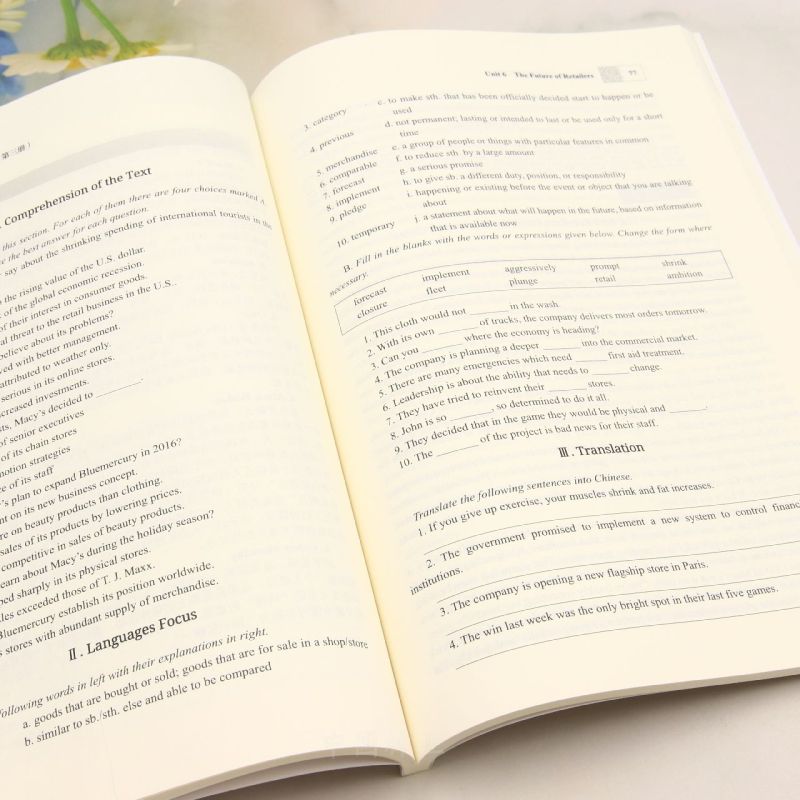 第二册)
Comprehension of the Text
this section. For each of them there are four choices marked A,
the best answer for each question.
say about the shrinking spending of international tourists in the
the rising value of the U.S. dollar.
of the global economic recession.
of their interest in consumer goods.
al threat to the retail business in the U.S..
believe about its problems?
ved with better management.
attributed to weather only.
serious in its online stores.
creased investments.
ts, Macy's decided to ________.
of senior executives
of its chain stores
motion strategies
ce of its staff
's plan to expand Bluemercury in 2016?
nt on its new business concept.
re on beauty products than clothing.
sales of its products by lowering prices.
competitive in sales of beauty products.
earn about Macy's during the holiday season?
ped sharply in its physical stores.
les exceeded those of T. J. Maxx.
Bluemercury establish its position worldwide.
s stores with abundant supply of merchandise.
Ⅱ. Languages Focus
following words in left with their explanations in right.
a. goods that are bought or sold; goods that are for sale in a shop/store
b. similar to sb./sth. else and able to be compared
Unit 6 The Future of Retailers 77
3. category c. to make sth. that has been officially decided start to happen or be
used
4. previous d. not permanent; lasting or intended to last or be used only for a short
time
5. merchandise e. a group of people or things with particular features in common
6. comparable f. to reduce sth. by a large amount
7. forecast g. a serious promise
8. implement h. to give sb. a different duty, position, or responsibility
9. pledge i. happening or existing before the event or object that you are talking
about
10. temporary j. a statement about what will happen in the future, based on information
that is available now
B. Fill in the blanks with the words or expressions given below. Change the form where
necessary.
forecast implement aggressively prompt shrink
closure fleet plunge retail ambition
1. This cloth would not ________ in the wash.
2. With its own ________ of trucks, the company delivers most orders tomorrow.
3. Can you ________ where the economy is heading?
4. The company is planning a deeper ________ into the commercial market.
5. There are many emergencies which need ________ first aid treatment.
6. Leadership is about the ability that needs to ________ change.
7. They have tried to reinvent their ________ stores.
8. John is so ________, so determined to do it all.
9. They decided that in the game they would be physical and ________.
10. The ________ of the project is bad news for their staff.
Ⅲ. Translation
Translate the following sentences into Chinese.
1. If you give up exercise, your muscles shrink and fat increases.
2. The government promised to implement a new system to control financ
institutions.
3. The company is opening a new flagship store in Paris.
4. The win last week was the only bright spot in their last five games.